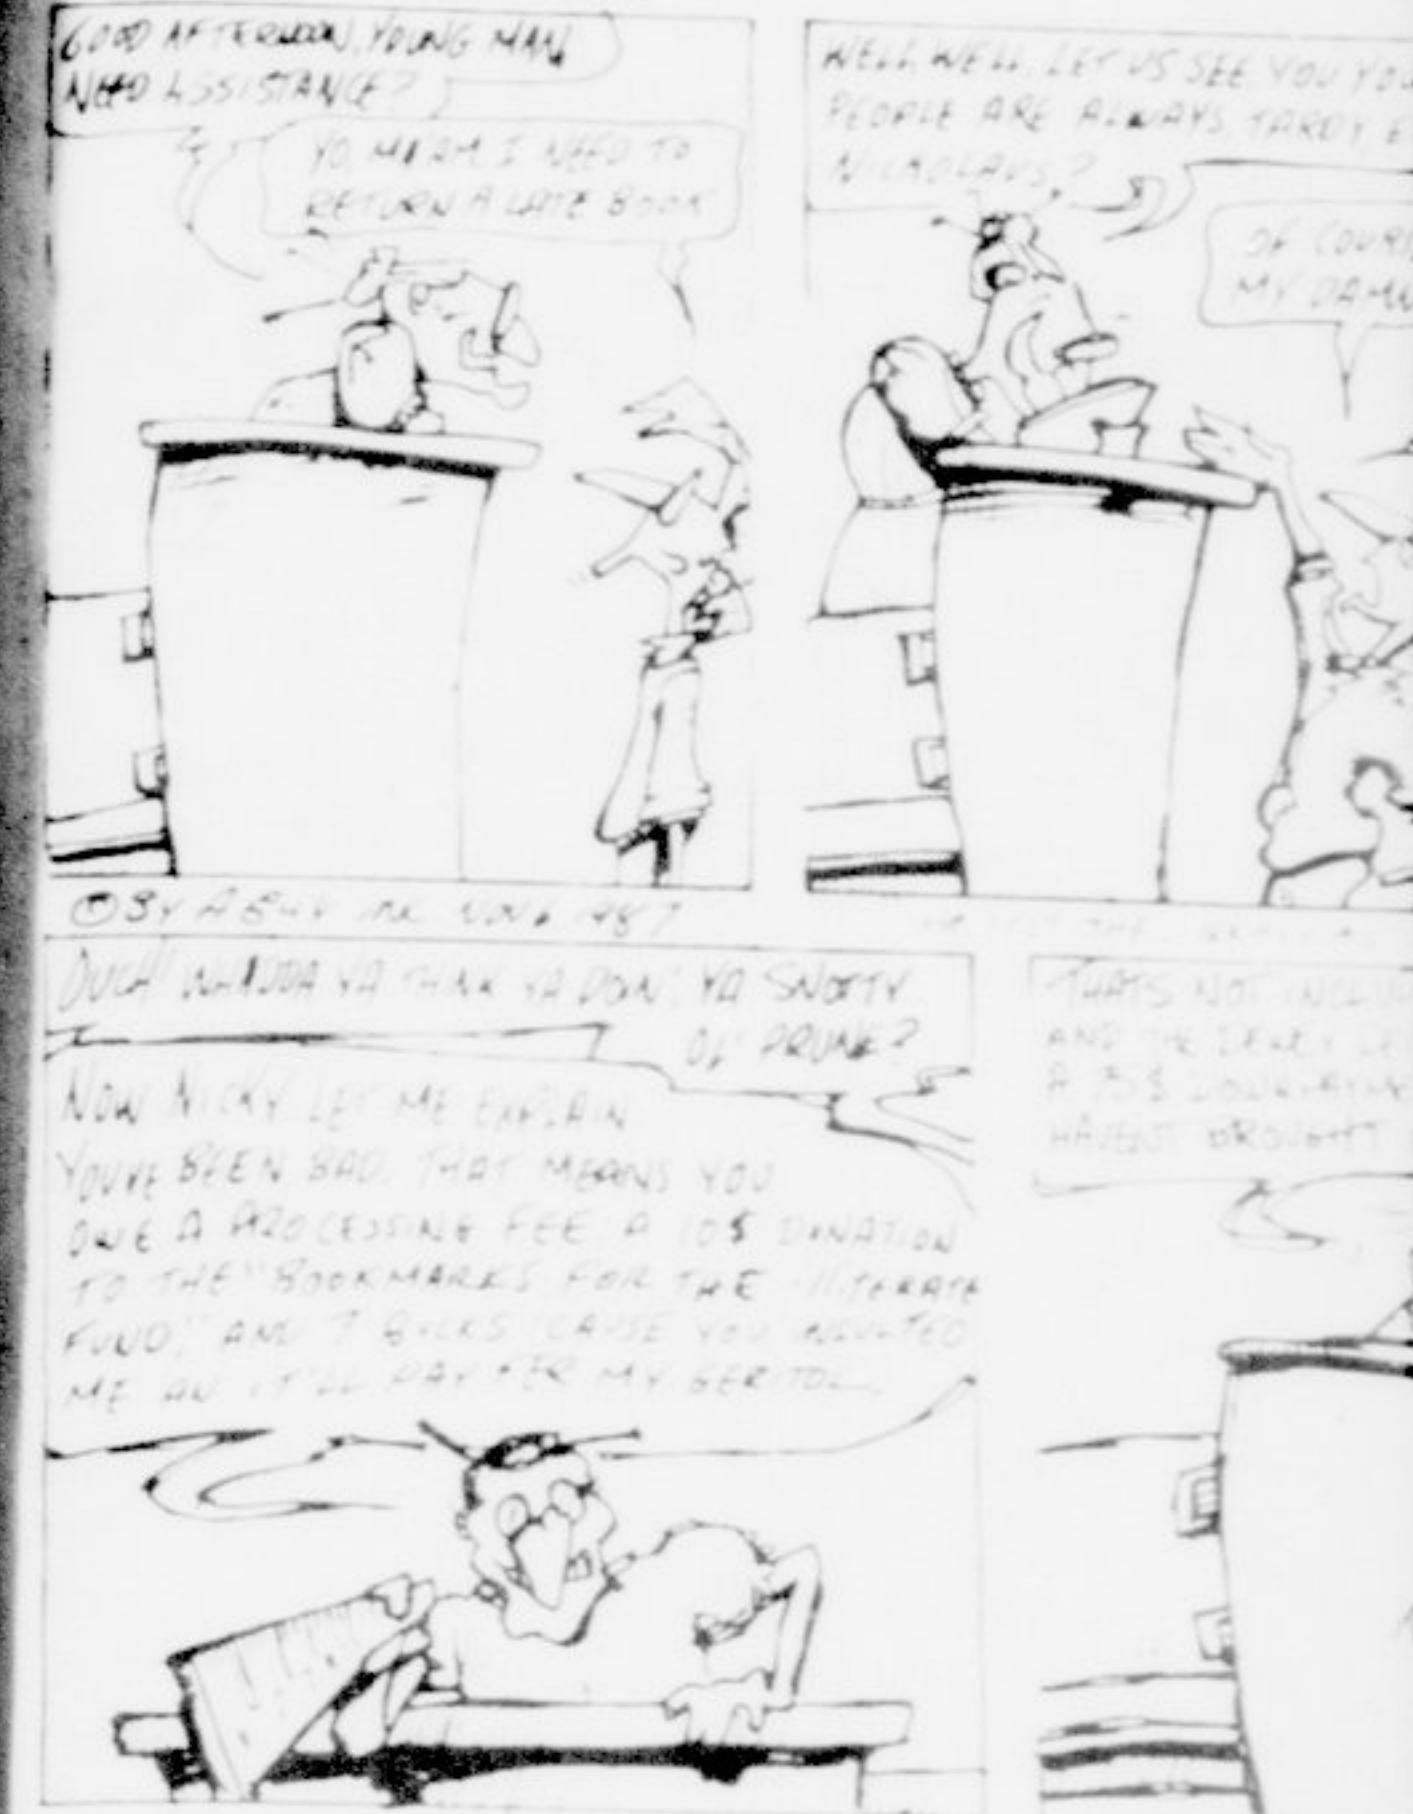 GOOD AFTERNOON, YOUNG MAN,
NEED ASSISTANCE?
YO, MA'AM. I NEED TO
RETURN A LATE BOOK
WELL, WELL, LET US SEE. YOU YOU
PEOPLE ARE ALWAYS TARDY, E
NICKOLAUS?
OF COURS
MY DAMN
© BY A GUY INC NOV 6 1987
OUCH! WHADDA YA THINK YA DOIN' YA SNOTTY
OL' PRUNE?
NOW NICKY LET ME EXPLAIN
YOUVE BEEN BAD. THAT MEANS YOU
OWE A PROCESSING FEE, A 10$ DONATION
TO THE "BOOKMARKS FOR THE ILLITERATE
FUND," AND 7 BUCKS 'CAUSE YOU INSULTED
ME AN IT'LL PAY FER MY GERITOL.
THATS NOT INCLU
AND THE DEWEY DE
A 75$ DOWNPAYME
HAVENT BROUGHT